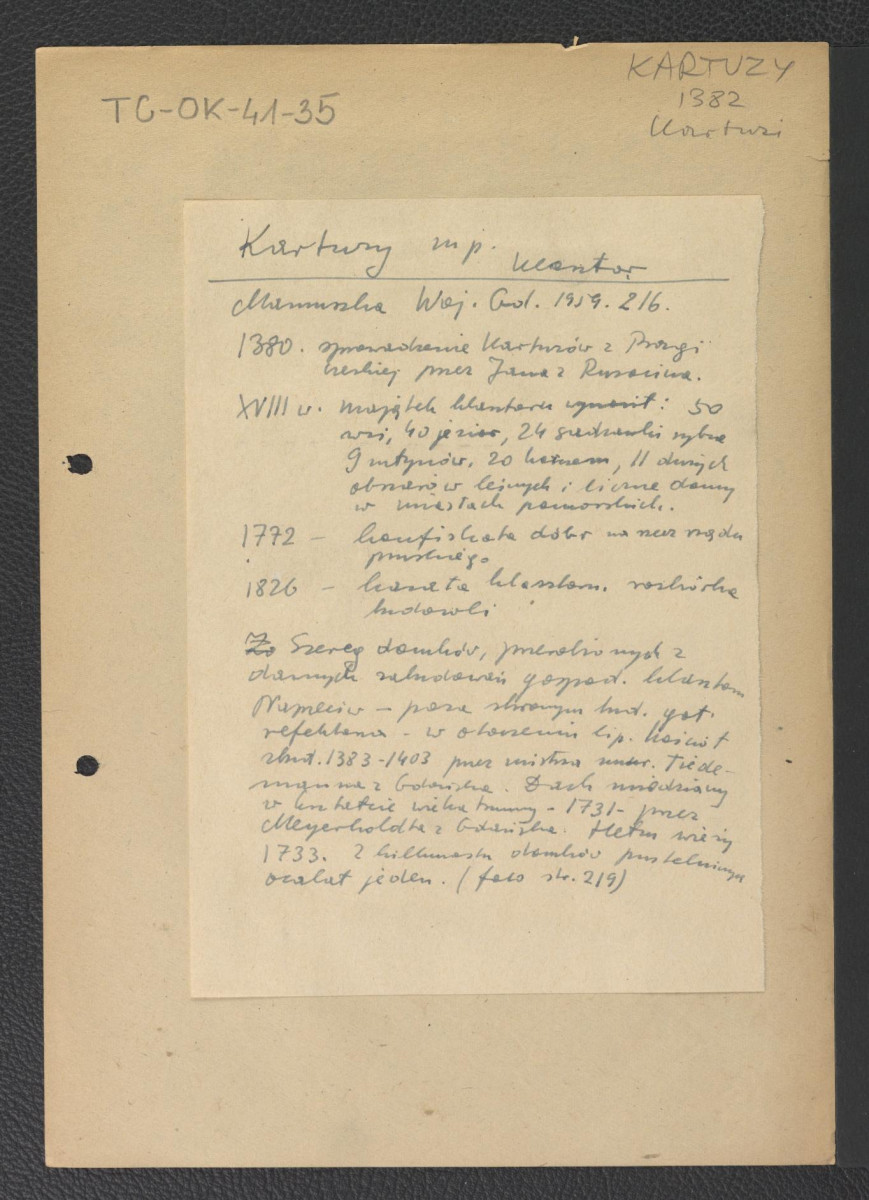 TC-OK-41-35
KARTUZY
1382
Kartuzi
Kartuzy mp.
Klasztor
Mamuszka Woj. Gd. 1959. 216.
1380. sprowadzenie Kartuzów z Pragi
czeskiej przez Jana z Rusocina.
XVIII w. majątek klasztoru wynosił: 50
wsi, 40 jezior, 24 sadzawki rybne
9 młynów, 20 karczem, 11 dużych
obszarów leśnych i liczne domy
w miastach pomorskich.
1772 – konfiskata dóbr na rzecz rządu
pruskiego
1826 – kasata klasztoru. rozbiórka
budowli
Zo Szereg domków, przerobionych z
dawnych zabudowań gospod. klasztoru
Naprzeciw – poza skromnym bud. got.
refektarza – w otoczeniu lip. kościół
zbud. 1383-1403 przez mistrza mur. Tiede-
manna z Gdańska. Dach miedziany
w kształcie wieka trumny – 1731 – przez
Meyerholdta z Gdańska. Hełm wieży
1733. Z kilkunastu domków pustelniczych
ocalał jeden. (foto str. 219)